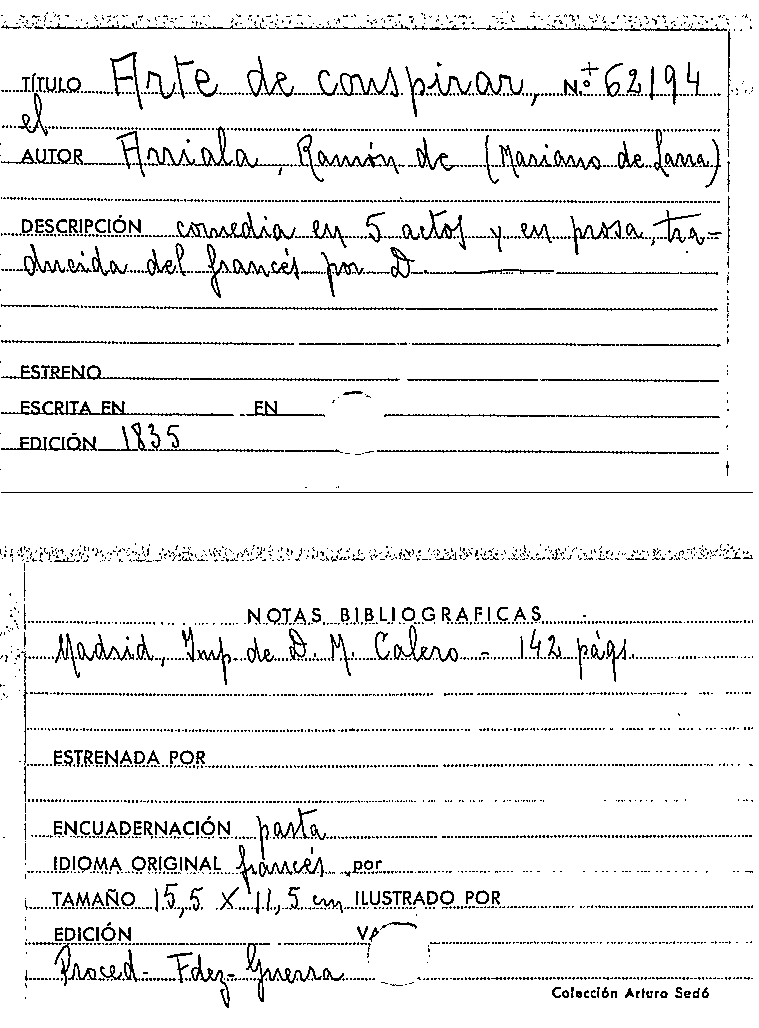 TÍTULO Arte de conspirar, N.º+ 62194
el
AUTOR Arriala, Ramón de (Mariano de Larra)
DESCRIPCIÓN comedia en 5 actos y en prosa, tra-
ducida del francés por D. ————
ESTRENO
ESCRITA EN EN
EDICIÓN 1835
NOTAS BIBLIOGRAFICAS
Madrid, Imp. de D. M. Calero - 142 págs.
ESTRENADA POR
ENCUADERNACIÓN pasta
IDIOMA ORIGINAL francés por
TAMAÑO 15,5 X 11,5 cm ILUSTRADO POR
EDICIÓN
Proced- Fdez- Guerra
Colección Arturo Sedó